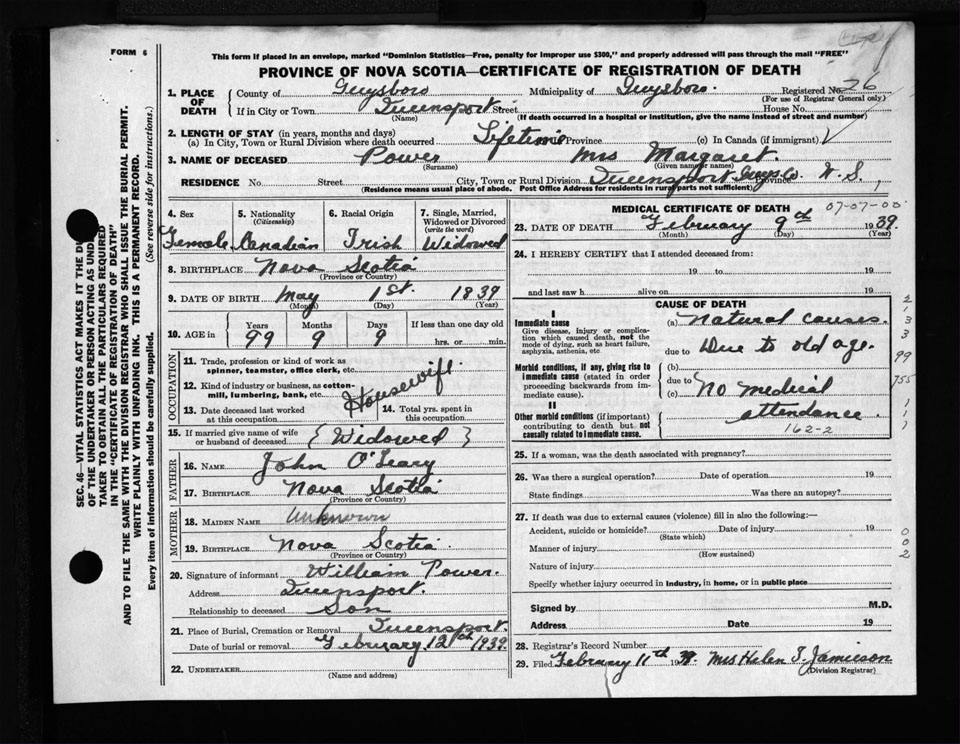 FORM 6
This form if placed in an envelope, marked "Dominion Statistics—Free, penalty for improper use $300," and properly addressed will pass through the mail "FREE"
PROVINCE OF NOVA SCOTIA—CERTIFICATE OF REGISTRATION OF DEATH
1. PLACE OF DEATH
County of Guysboro Municipality of Guysboro. Registered No. 26
(For use of Registrar General only)
If in City or Town Queensport Street House No.
(Name) (If death occurred in a hospital or institution, give the name instead of street and number)
2. LENGTH OF STAY (in years, months and days)
(a) In City, Town or Rural Division where death occurred Lifetime Province (c) In Canada (if immigrant)
3. NAME OF DECEASED Power Mrs Margaret.
(Surname) (Given name or names)
RESIDENCE No. Street City, Town or Rural Division Queensport Guys Co. Province N. S.
(Residence means usual place of abode. Post Office Address for residents in rural parts not sufficient)
SEC. 46—VITAL STATISTICS ACT MAKES IT THE DU
OF THE UNDERTAKER OR PERSON ACTING AS UND
TAKER TO OBTAIN ALL THE PARTICULARS REQUIRED
IN THE "CERTIFICATE OF REGISTRATION OF DEATH"
AND TO FILE THE SAME WITH THE DIVISION REGISTRAR WHO SHALL ISSUE THE BURIAL PERMIT.
WRITE PLAINLY WITH UNFADING INK. THIS IS A PERMANENT RECORD.
Every item of information should be carefully supplied. (See reverse side for instructions.)
4. Sex 5. Nationality (Citizenship) 6. Racial Origin 7. Single, Married, Widowed or Divorced (write the word)
Female Canadian Irish Widowed
8. BIRTHPLACE Nova Scotia
(Province or Country)
9. DATE OF BIRTH May 1st. 1839
(Month) (Day) (Year)
10. AGE in Years Months Days If less than one day old
99 9 9 hrs. or min.
OCCUPATION
11. Trade, profession or kind of work as spinner, teamster, office clerk, etc.
12. Kind of industry or business, as cotton-mill, lumbering, bank, etc. Housewife
13. Date deceased last worked at this occupation 14. Total yrs. spent in this occupation
15. If married give name of wife or husband of deceased { Widowed }
FATHER
16. NAME John O'Leary
17. BIRTHPLACE Nova Scotia
(Province or Country)
MOTHER
18. MAIDEN NAME Unknown
19. BIRTHPLACE Nova Scotia.
(Province or Country)
20. Signature of informant William Power.
Address Queensport.
Relationship to deceased Son
21. Place of Burial, Cremation or Removal Queensport.
Date of burial or removal February 12th 1939.
22. UNDERTAKER
(Name and address)
MEDICAL CERTIFICATE OF DEATH 07-07-00
23. DATE OF DEATH February 9th 1939.
(Month) (Day) (Year)
24. I HEREBY CERTIFY that I attended deceased from:
19 to 19
and last saw h alive on 19
CAUSE OF DEATH
I
Immediate cause
Give disease, injury or complication which caused death, not the mode of dying, such as heart failure, asphyxia, asthenia, etc.
(a) Natural causes.
due to Due to old age.
Morbid conditions, if any, giving rise to immediate cause (stated in order proceeding backwards from immediate cause).
(b)
due to
(c) No medical attendance.
II
Other morbid conditions (if important) contributing to death but not causally related to immediate cause.
162-2
2
1
3
3
99
755
1
1
1
25. If a woman, was the death associated with pregnancy?
26. Was there a surgical operation? Date of operation 19
State findings Was there an autopsy?
27. If death was due to external causes (violence) fill in also the following:—
Accident, suicide or homicide? Date of injury 19
(State which)
Manner of injury
(How sustained)
Nature of injury
Specify whether injury occurred in industry, in home, or in public place
0
0
2
Signed by M.D.
Address Date 19
28. Registrar's Record Number
29. Filed February 11th 1939. Mrs Helen T. Jamieson
(Division Registrar)